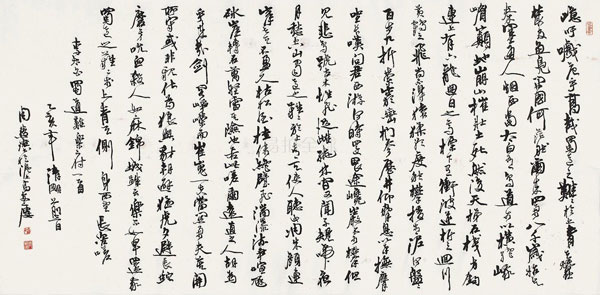 噫吁嚱危乎高哉蜀道之難難於上青天蠶
叢及魚鳧開國何茫然爾來四萬八千歲
秦塞通人煙西當太白有鳥道可以橫絕峨
眉巔地崩山摧壯士死然後天梯石棧方鉤
連上有六龍回日之高標下有衝波逆折之回川
黃鶴之飛尚不得猿猱欲度愁攀援青泥何盤
百步九折縈巖巒捫參歷井仰脅息以手撫膺
坐長嘆問君西遊何時還畏途巉巖不可攀但
見悲鳥號古木雄飛雌從繞林間又聞子規啼夜
月愁空山蜀道之難難於上青天使人聽此凋朱顏連
峰去天不盈尺枯松倒掛倚絕壁飛湍瀑流爭喧豗
砯崖轉石萬壑雷其險也若此嗟爾遠道之人胡為
乎來哉劍閣崢嶸而崔嵬一夫當關萬夫莫開
所守或匪親化為狼與豺朝避猛虎夕避長蛇
磨牙吮血殺人如麻錦城雖云樂不如早還家
蜀道之難難於上青天側身西望長咨嗟
李太白蜀道難一首
乙亥年清明
周